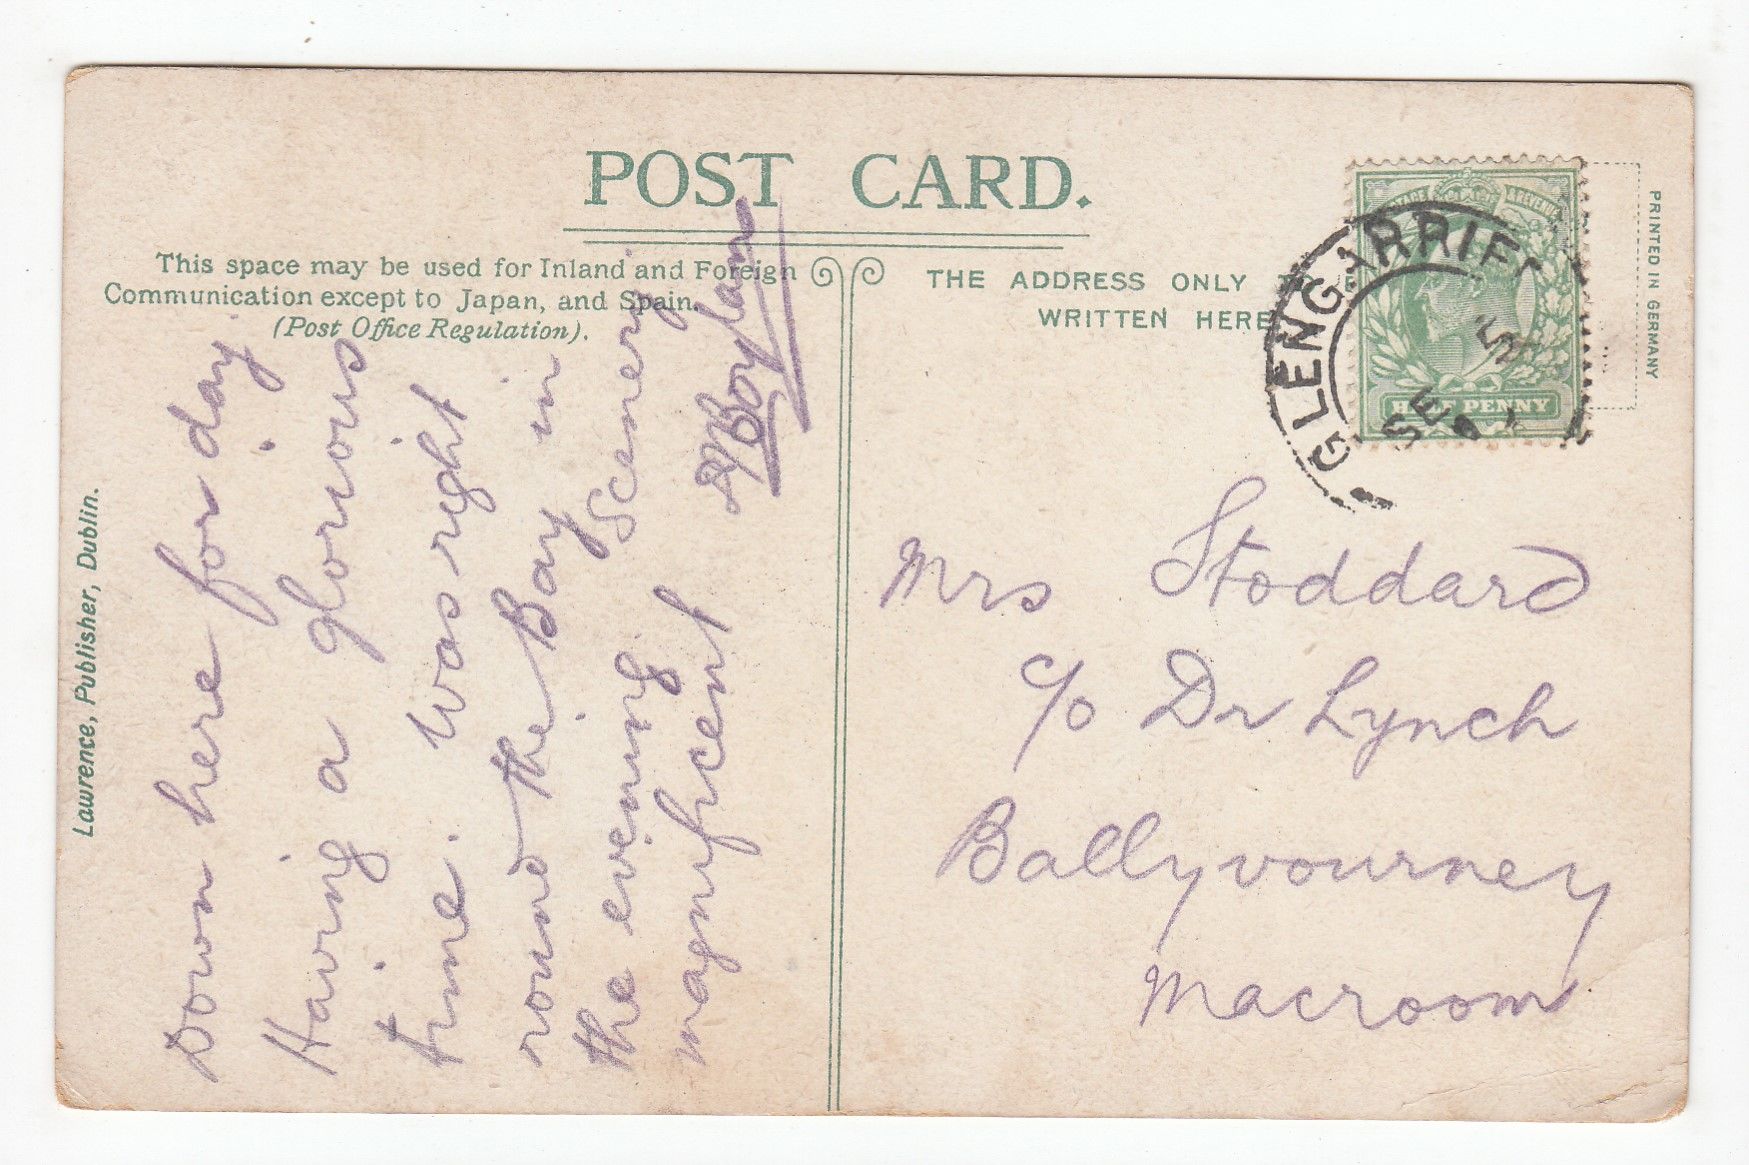 POST CARD.
This space may be used for Inland and Foreign
Communication except to Japan, and Spain.
(Post Office Regulation).
THE ADDRESS ONLY TO BE
WRITTEN HERE
PRINTED IN GERMANY
GLENGARRIFF
SE
5
HALFPENNY
Lawrence, Publisher, Dublin.
Down here for day.
Having a glorious
time. Was right
round the Bay in
the evening. Scenery
magnificent
Boylan
Mrs Stoddard
c/o Dr Lynch
Ballyvourney
Macroom